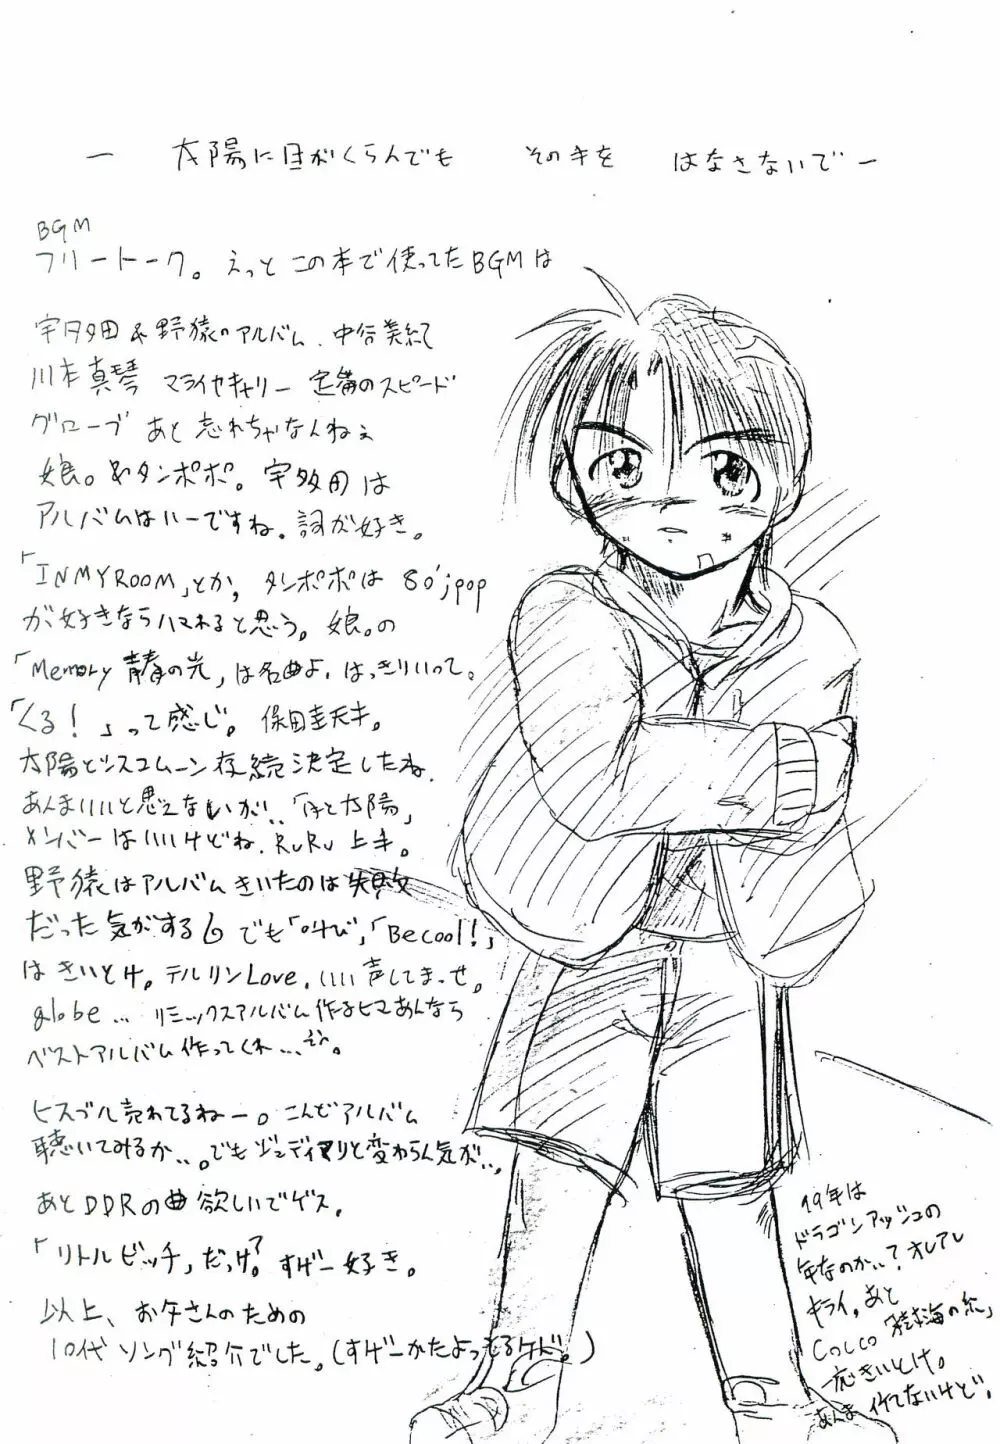 ー 太陽に目がくらんでも その手を はなさないで ー
BGM
フリートーク。えっと この本で使ってたBGMは
宇多田&野猿のアルバム、中谷美紀
川本真琴 マライヤキャリー 定番のスピード
グローブ あと 忘れちゃなんねぇ
娘。&タンポポ。宇多田は
アルバムはいーですね。詞が好き。
「IN MY ROOM」とか、タンポポは 80'jpop
が好きならハマれると思う。娘。の
「Memory 青春の光」は名曲よ、はっきりいって。
「くる!」って感じ。保田圭天才。
太陽とシスコムーン存続決定したね、
あんまいいと思えないが、「月と太陽」
メンバーはいいけどね、RuRu 上手。
野猿はアルバムきいたのは失敗
だった気がする でも「叫び」「Be cool!」
は きいとけ。テルリンLove、いい声してまっせ。
globe... リミックスアルバム作るヒマあんなら
ベストアルバム作ってくれ...
ヒスブル売れてるねー。こんどアルバム
聴いてみるか、、。でもジュディマリと変わらん気が、、。
あとDDRの曲欲しいでゲス。
「リトルビッチ」だっけ?すげー好き。
以上、お子さんのための
10代ソング紹介でした。(すげーかたよってるケド。)
19年は
ドラゴンアッシュの
年なのか、、?オレアレ
キライ。あと
Cocco「樹海の糸」
一応きいとけ。
あんま 似てないけど。